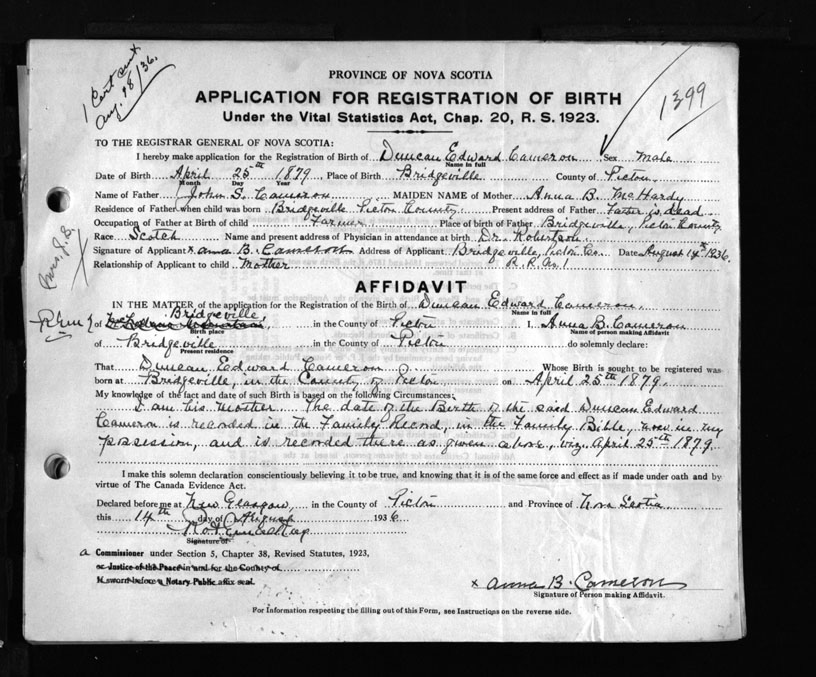 1 Cert sent
Aug. 18/36.
1399
PROVINCE OF NOVA SCOTIA
APPLICATION FOR REGISTRATION OF BIRTH
Under the Vital Statistics Act, Chap. 20, R. S. 1923.
TO THE REGISTRAR GENERAL OF NOVA SCOTIA:
I hereby make application for the Registration of Birth of Duncan Edward Cameron Sex Male
Name in full
Date of Birth April 25th 1879. Place of Birth Bridgeville County of Pictou
Month Day Year
Name of Father John S. Cameron MAIDEN NAME of Mother Anna B. McHardy
Residence of Father when child was born Bridgeville Pictou County Present address of Father Father is dead
Occupation of Father at Birth of child Farmer Place of birth of Father Bridgeville, Pictou County
Race Scotch Name and present address of Physician in attendance at birth Dr. Robertson
Signature of Applicant x Anna B. Cameron Address of Applicant Bridgeville, Pictou Co. Date August 14th 1936.
Relationship of Applicant to child Mother R. R. No. 1
AFFIDAVIT
IN THE MATTER of the application for the Registration of the Birth of Duncan Edward Cameron,
Name in full
Bridgeville,
of in the County of Pictou I, Anna B. Cameron
Birth place Name of person making Affidavit
of Bridgeville in the County of Pictou do solemnly declare:
Present residence
That Duncan Edward Cameron Whose Birth is sought to be registered was
born at Bridgeville, in the County of Pictou on April 25th 1879.
My knowledge of the fact and date of such Birth is based on the following Circumstances:
I am his mother The date of the Birth of the said Duncan Edward
Cameron is recorded in the Family Record, in the Family Bible, now in my
possession, and is recorded there as given above, viz. April 25th 1879.
I make this solemn declaration conscientiously believing it to be true, and knowing that it is of the same force and effect as if made under oath and by
virtue of The Canada Evidence Act.
Declared before me at New Glasgow, in the County of Pictou and Province of Nova Scotia
this 14th day of August 1936
Signature of
a Commissioner under Section 5, Chapter 38, Revised Statutes, 1923,
or Justice of the Peace in and for the County of
If sworn before a Notary Public affix seal.
x Anna B. Cameron
Signature of Person making Affidavit.
For Information respecting the filling out of this Form, see Instructions on the reverse side.